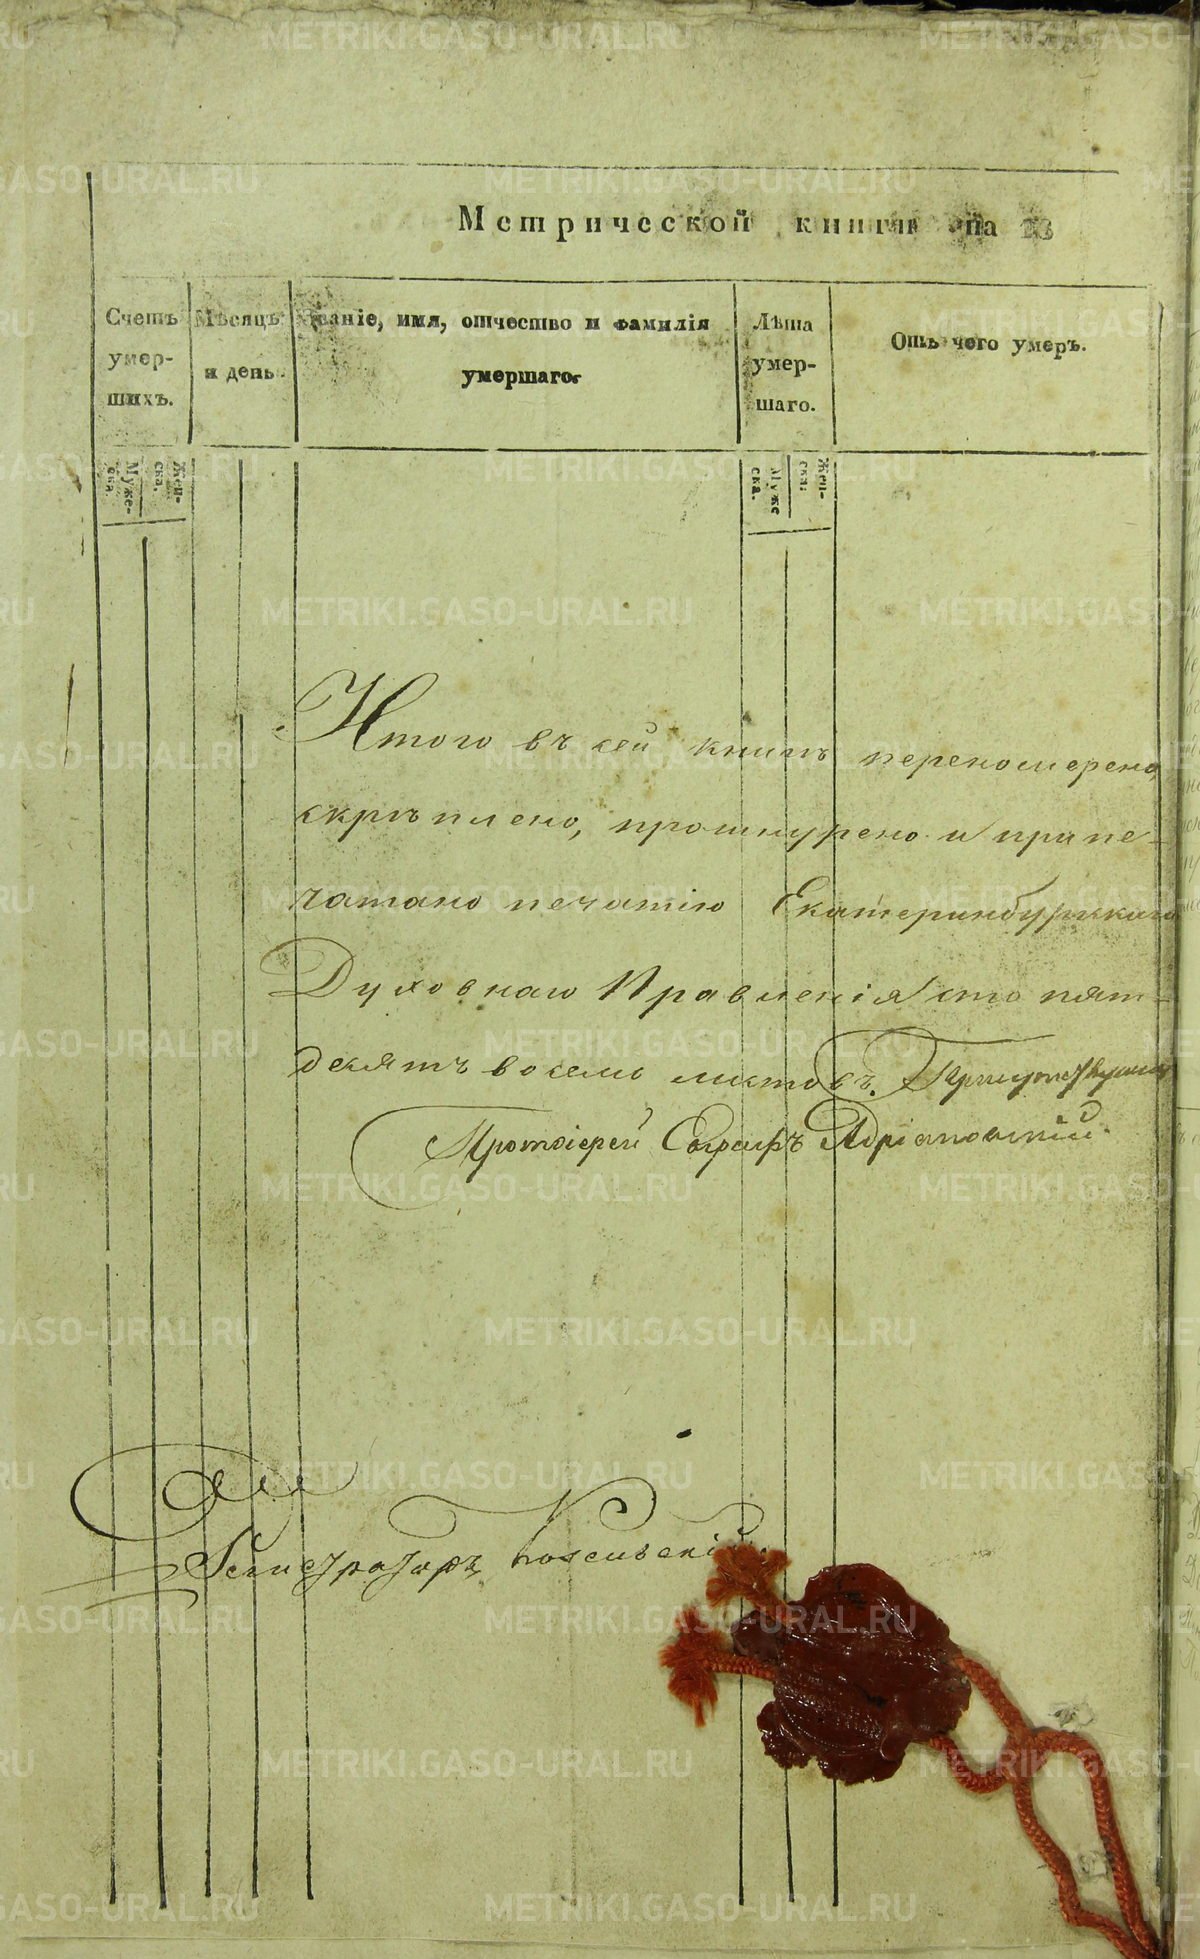 Метрической книги на 18
Счетъ умер-шихъ.
Мѣсяцъ и день.
Званіе, имя, отчество и фамилія
умершаго.
Лѣта умер-шаго.
Отъ чего умеръ.
Муже-ска.
Жен-ска.
Муже ска.
Жен-ска.
Итого въ сей книгѣ переномерено,
скрѣплено, прошнурено и припе-
чатано печатію Екатеринбургскаго
Духовнаго Правленія сто пять-
десятъ восемь листовъ. Присутствующій
Протоіерей Евграфъ Адріановскій.
Регистраторъ
METRIKI.GASO-URAL.RU